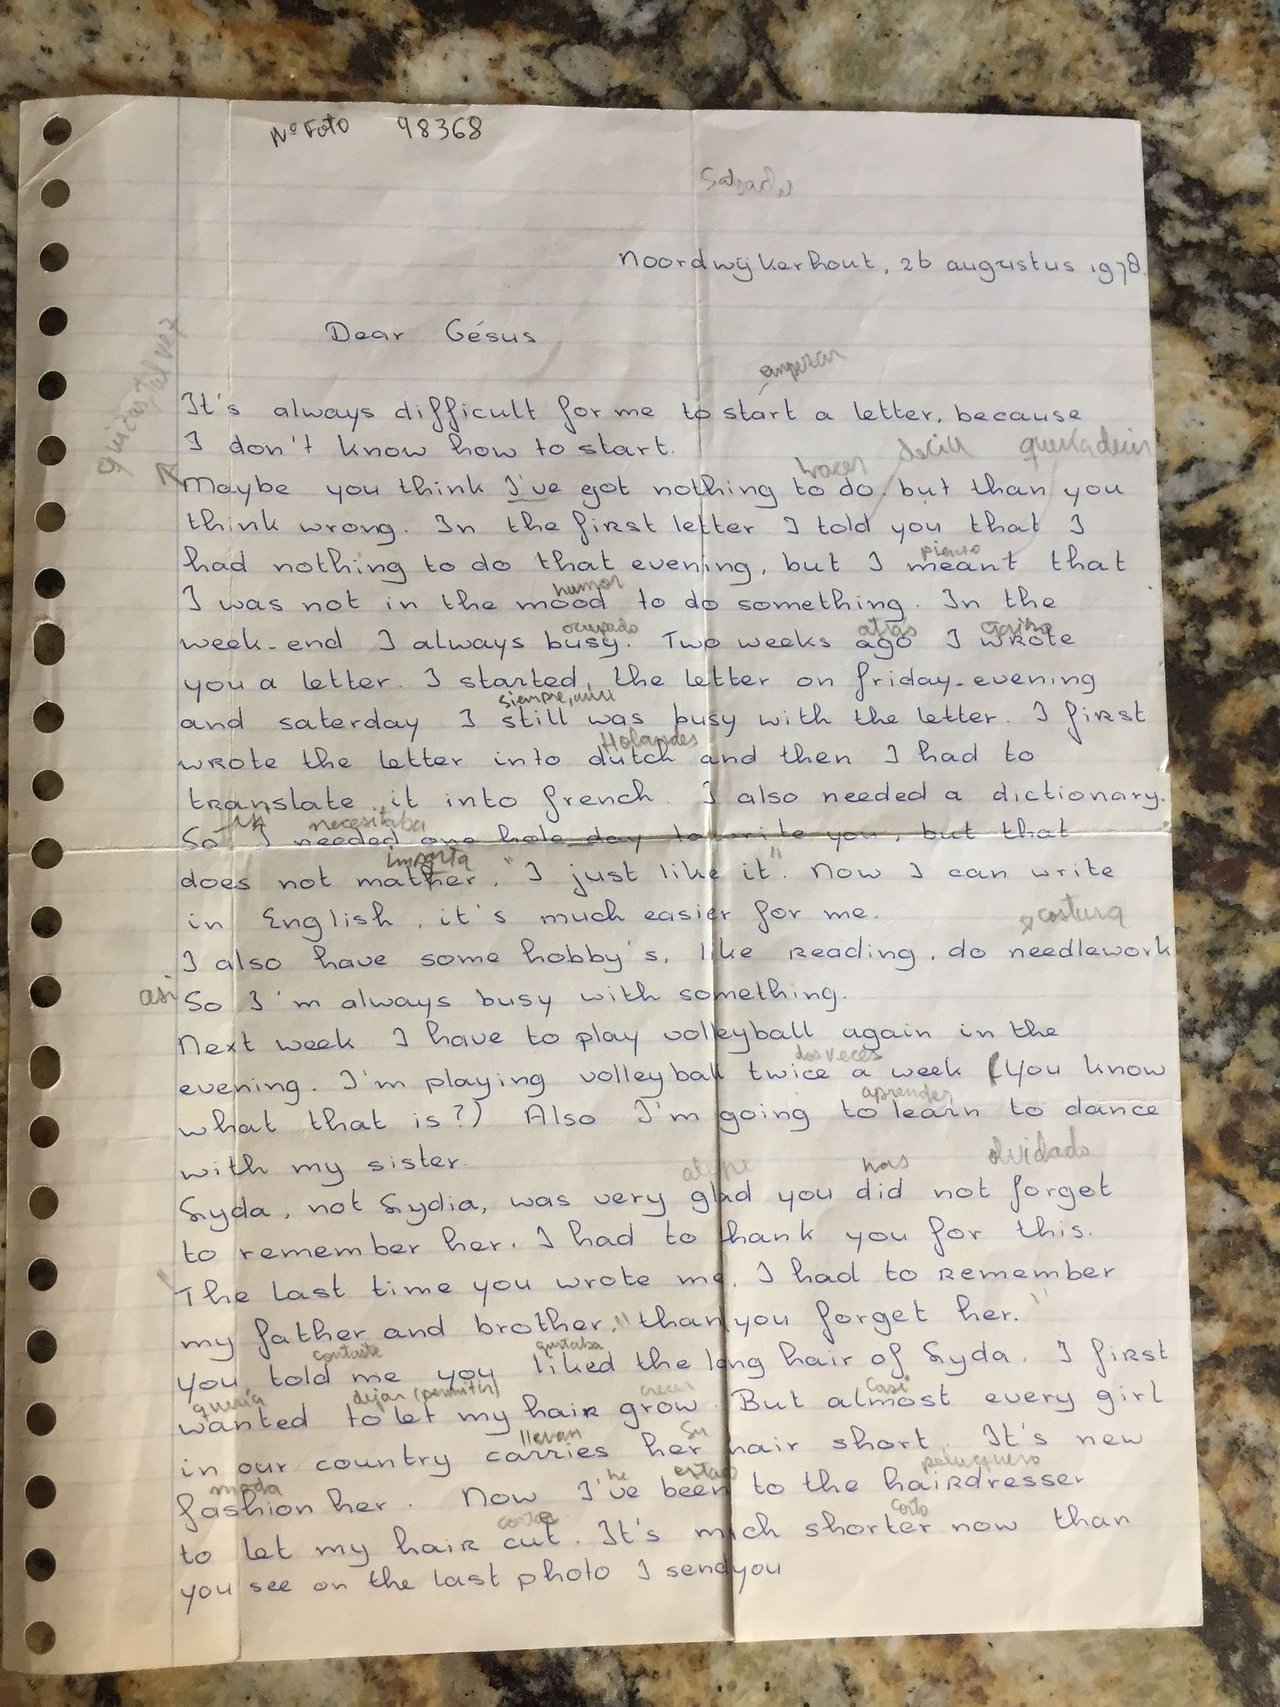 Nº Foto 98368
Sabado
Noordwijkerhout, 26 augustus 1978.
Dear Gésus
empezar
It's always difficult for me to start a letter, because
I don't know how to start.
quizas, tal vez
hacer decir quería decir
Maybe you think I've got nothing to do, but than you
think wrong. In the first letter I told you that I
pienso
had nothing to do that evening, but I meant that
humor
I was not in the mood to do something. In the
ocupado atras
week-end I always busy. Two weeks ago I wrote
you a letter. I started, the letter on friday-evening
siempre,
and saterday I still was busy with the letter. I first
Holandes
wrote the letter into dutch and then I had to
translate it into french. I also needed a dictionary.
necesitaba
So I needed one hole day to write you, but that
importa
does not mather, "I just like it". Now I can write
in English, it's much easier for me.
costura
I also have some hobby's, like reading, do needlework
asi
So I'm always busy with something.
Next week I have to play volleyball again in the
dos veces
evening. I'm playing volleyball twice a week (You know
aprender
what that is?) Also I'm going to learn to dance
with my sister.
has olvidado
Lyda, not Lydia, was very glad you did not forget
to remember her. I had to thank you for this.
The last time you wrote me, I had to remember
my father and brother, "than you forget her."
contaste gustaba
You told me you liked the long hair of Lyda. I first
quería dejar (permitir) crecer Casi
wanted to let my hair grow. But almost every girl
llevan su
in our country carries her hair short. It's new
moda he estado peluquero
fashion her. Now I've been to the hairdresser
cortar corto
to let my hair cut. It's much shorter now than
you see on the last photo I send you